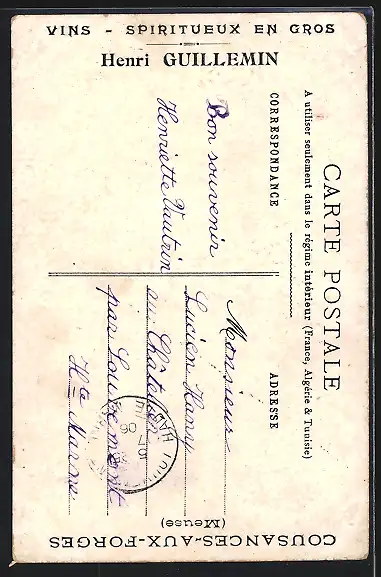 VINS - SPIRITUEUX EN GROS
Henri GUILLEMIN
CARTE POSTALE
A utiliser seulement dans le régime intérieur (France, Algérie & Tunisie)
CORRESPONDANCE
ADRESSE
Bon souvenir
Henriette Vautrin
Monsieur
Lucien
au Châtelet
par
Hte Marne
COUSANCES-AUX-FORGES
(Meuse)